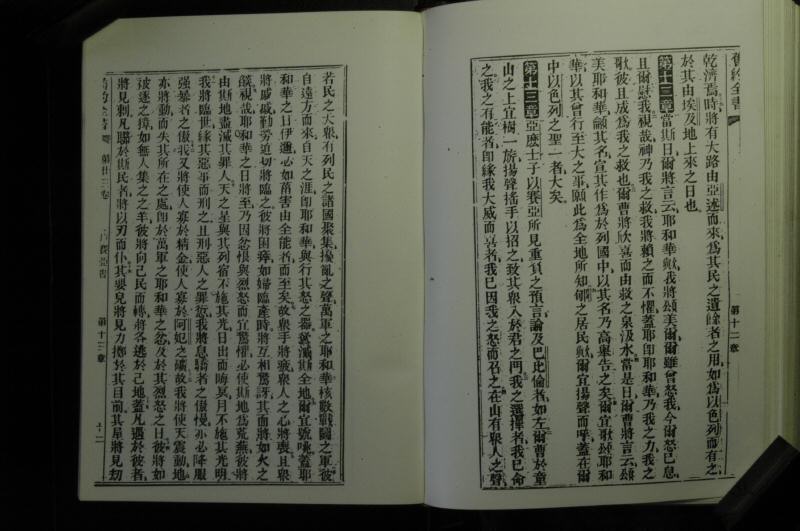 舊約全書
第十二章
乾濟焉時將有大路由亞述而來爲其民之遺餘者之用如爲以色列而有之
於其由埃及地上來之日也
第十二章當斯日爾將言云耶和華歟我將頌美爾爾雖曾怒我今爾怒已息
且爾慰我視哉神乃我之救我將賴之而不懼蓋耶耶和華乃我之力我之
歌彼且成爲我之救也爾曹將欣喜而由救之泉汲水當是日爾曹將言云頌
美耶和華籲其名宣其作爲於列國中以其名乃高舉告之矣爾宜歌頌耶和
華以其曾行至大之事願此爲全地所知郇之居民歟爾宜揚聲而呼蓋在爾
中以色列之聖一者大矣
第十三章亞麽士子以賽亞所見重負之預言論及巴比倫者如左爾曹於童
山之上宜樹一旂揚聲搖手以招之致其衆入於君之門我之選擇者我已命
之我之有能者卽緣我大威而喜者我已因我之怒而召之在山有衆人之聲
若民之大衆有列民之諸國聚集擾亂之聲萬軍之耶和華核數戰鬪之軍彼
自遠方而來自天之涯卽耶和華與行其怒之器欲滅斯全地爾宜號咷蓋耶
和華之日伊邇必如菑害由全能者而至矣故衆手將疲衆人之心將喪且衆
將戚戚勤勞迫切將臨之彼將困瘁如婦臨產時將互相驚訝其面將如火之
燄視哉耶和華之日將至乃因忿恨與烈怒而宜驚懼必使斯地爲荒蕪彼將
由斯地盡滅其罪人天之星與其列宿不施其光日出而晦冥月不施其光明
我將臨世緣其惡事而刑之且刑惡人之罪愆我將息驕者之傲慢亦必降服
强暴者之傲我又將使人寡於精金使人寡於阿妃之礦故我將使天震動地
亦將動而失其所在之處卽於萬軍之耶和華之忿及於其烈怒之日彼將如
被逐之獐如無人集之之羊彼將向己民而轉將各逃於己地蓋凡遇於彼者
將見刺凡聯於斯民者將以刃而仆其嬰兒將見力擲於其目前其屋將見刼
第廿三卷
以賽亞書
第十三章